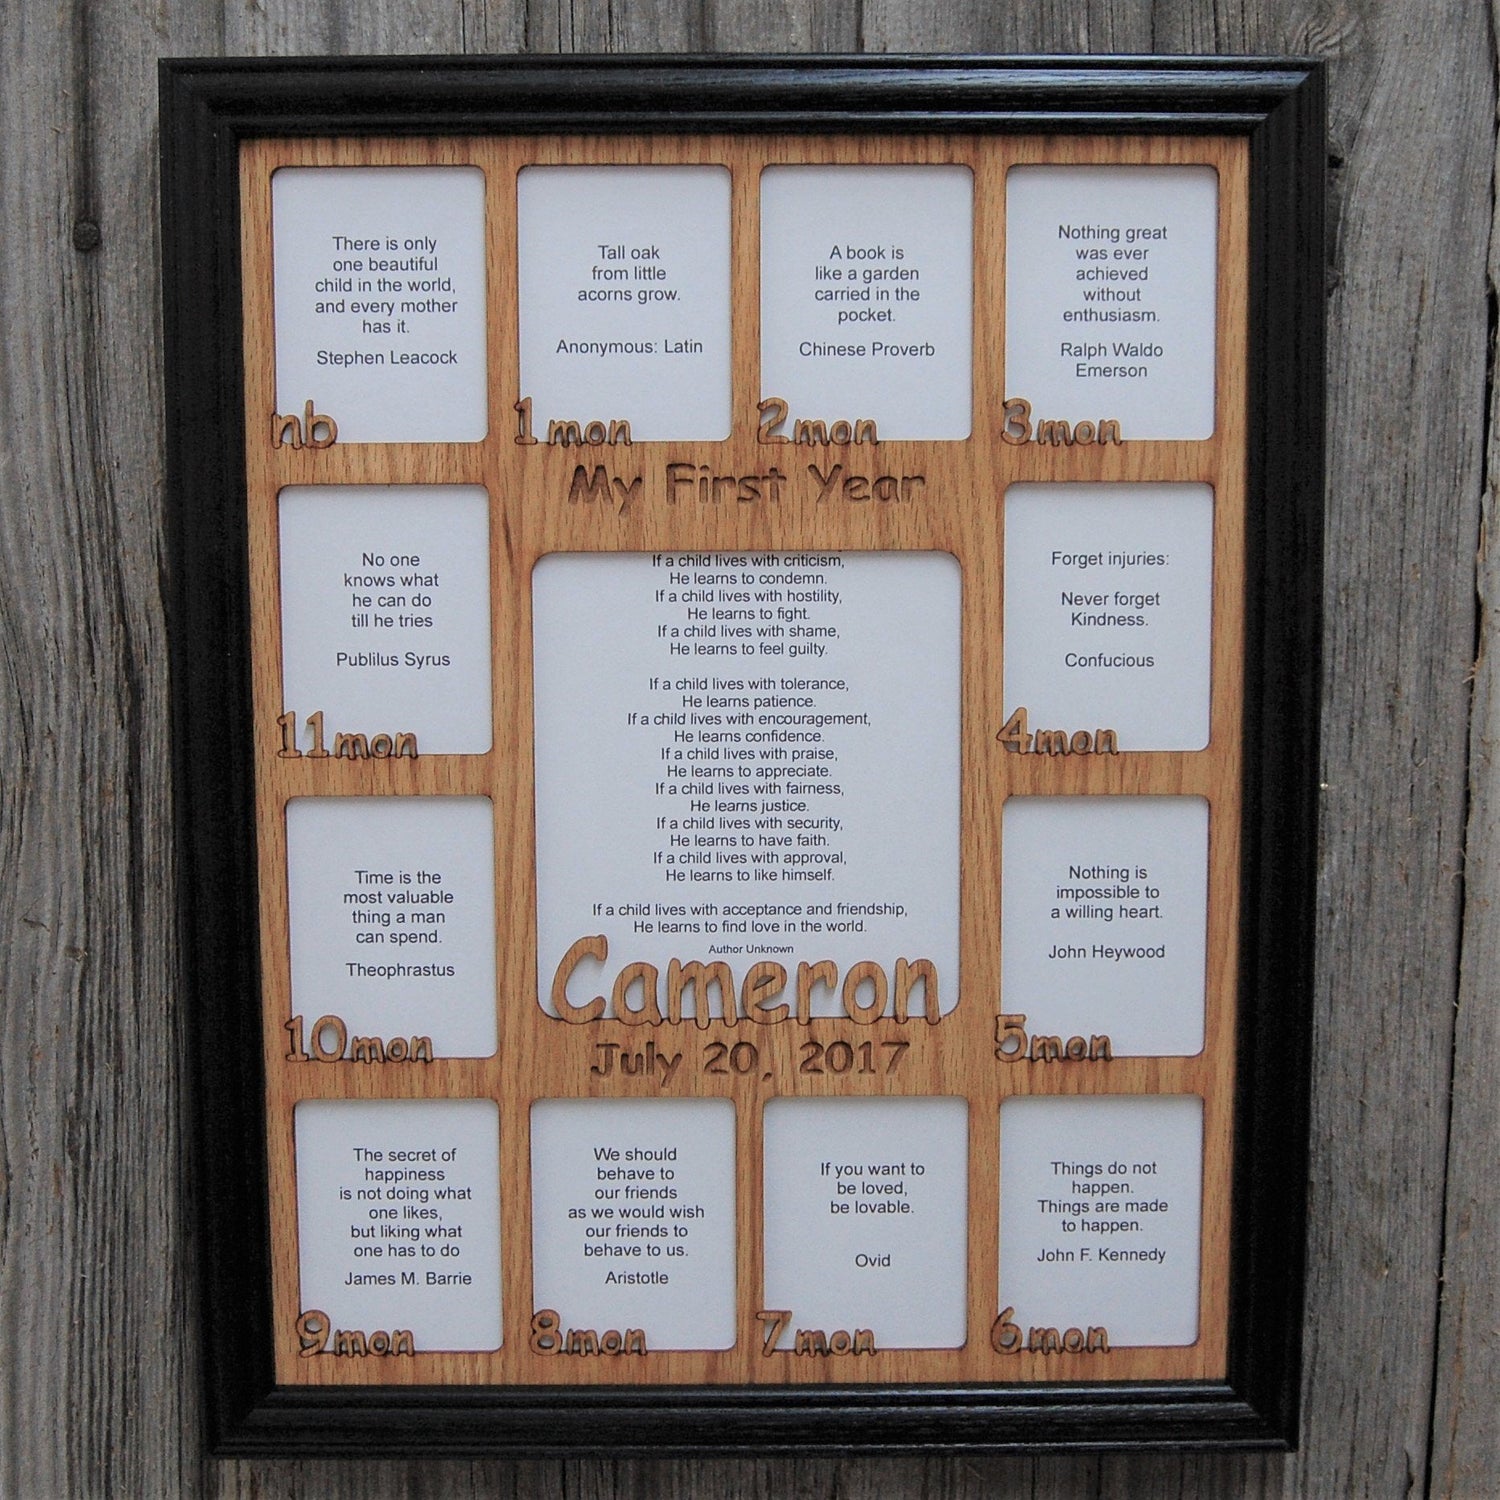 There is only
one beautiful
child in the world,
and every mother
has it.
Stephen Leacock
nb
Tall oak
from little
acorns grow.
Anonymous: Latin
1mon
A book is
like a garden
carried in the
pocket.
Chinese Proverb
2mon
Nothing great
was ever
achieved
without
enthusiasm.
Ralph Waldo
Emerson
3mon
My First Year
No one
knows what
he can do
till he tries
Publilus Syrus
11mon
If a child lives with criticism,
He learns to condemn.
If a child lives with hostility,
He learns to fight.
If a child lives with shame,
He learns to feel guilty.
If a child lives with tolerance,
He learns patience.
If a child lives with encouragement,
He learns confidence.
If a child lives with praise,
He learns to appreciate.
If a child lives with fairness,
He learns justice.
If a child lives with security,
He learns to have faith.
If a child lives with approval,
He learns to like himself.
If a child lives with acceptance and friendship,
He learns to find love in the world.
Author Unknown
Cameron
July 20, 2017
Forget injuries:
Never forget
Kindness.
Confucious
4mon
Time is the
most valuable
thing a man
can spend.
Theophrastus
10mon
Nothing is
impossible to
a willing heart.
John Heywood
5mon
The secret of
happiness
is not doing what
one likes,
but liking what
one has to do
James M. Barrie
9mon
We should
behave to
our friends
as we would wish
our friends to
behave to us.
Aristotle
8mon
If you want to
be loved,
be lovable.
Ovid
7mon
Things do not
happen.
Things are made
to happen.
John F. Kennedy
6mon